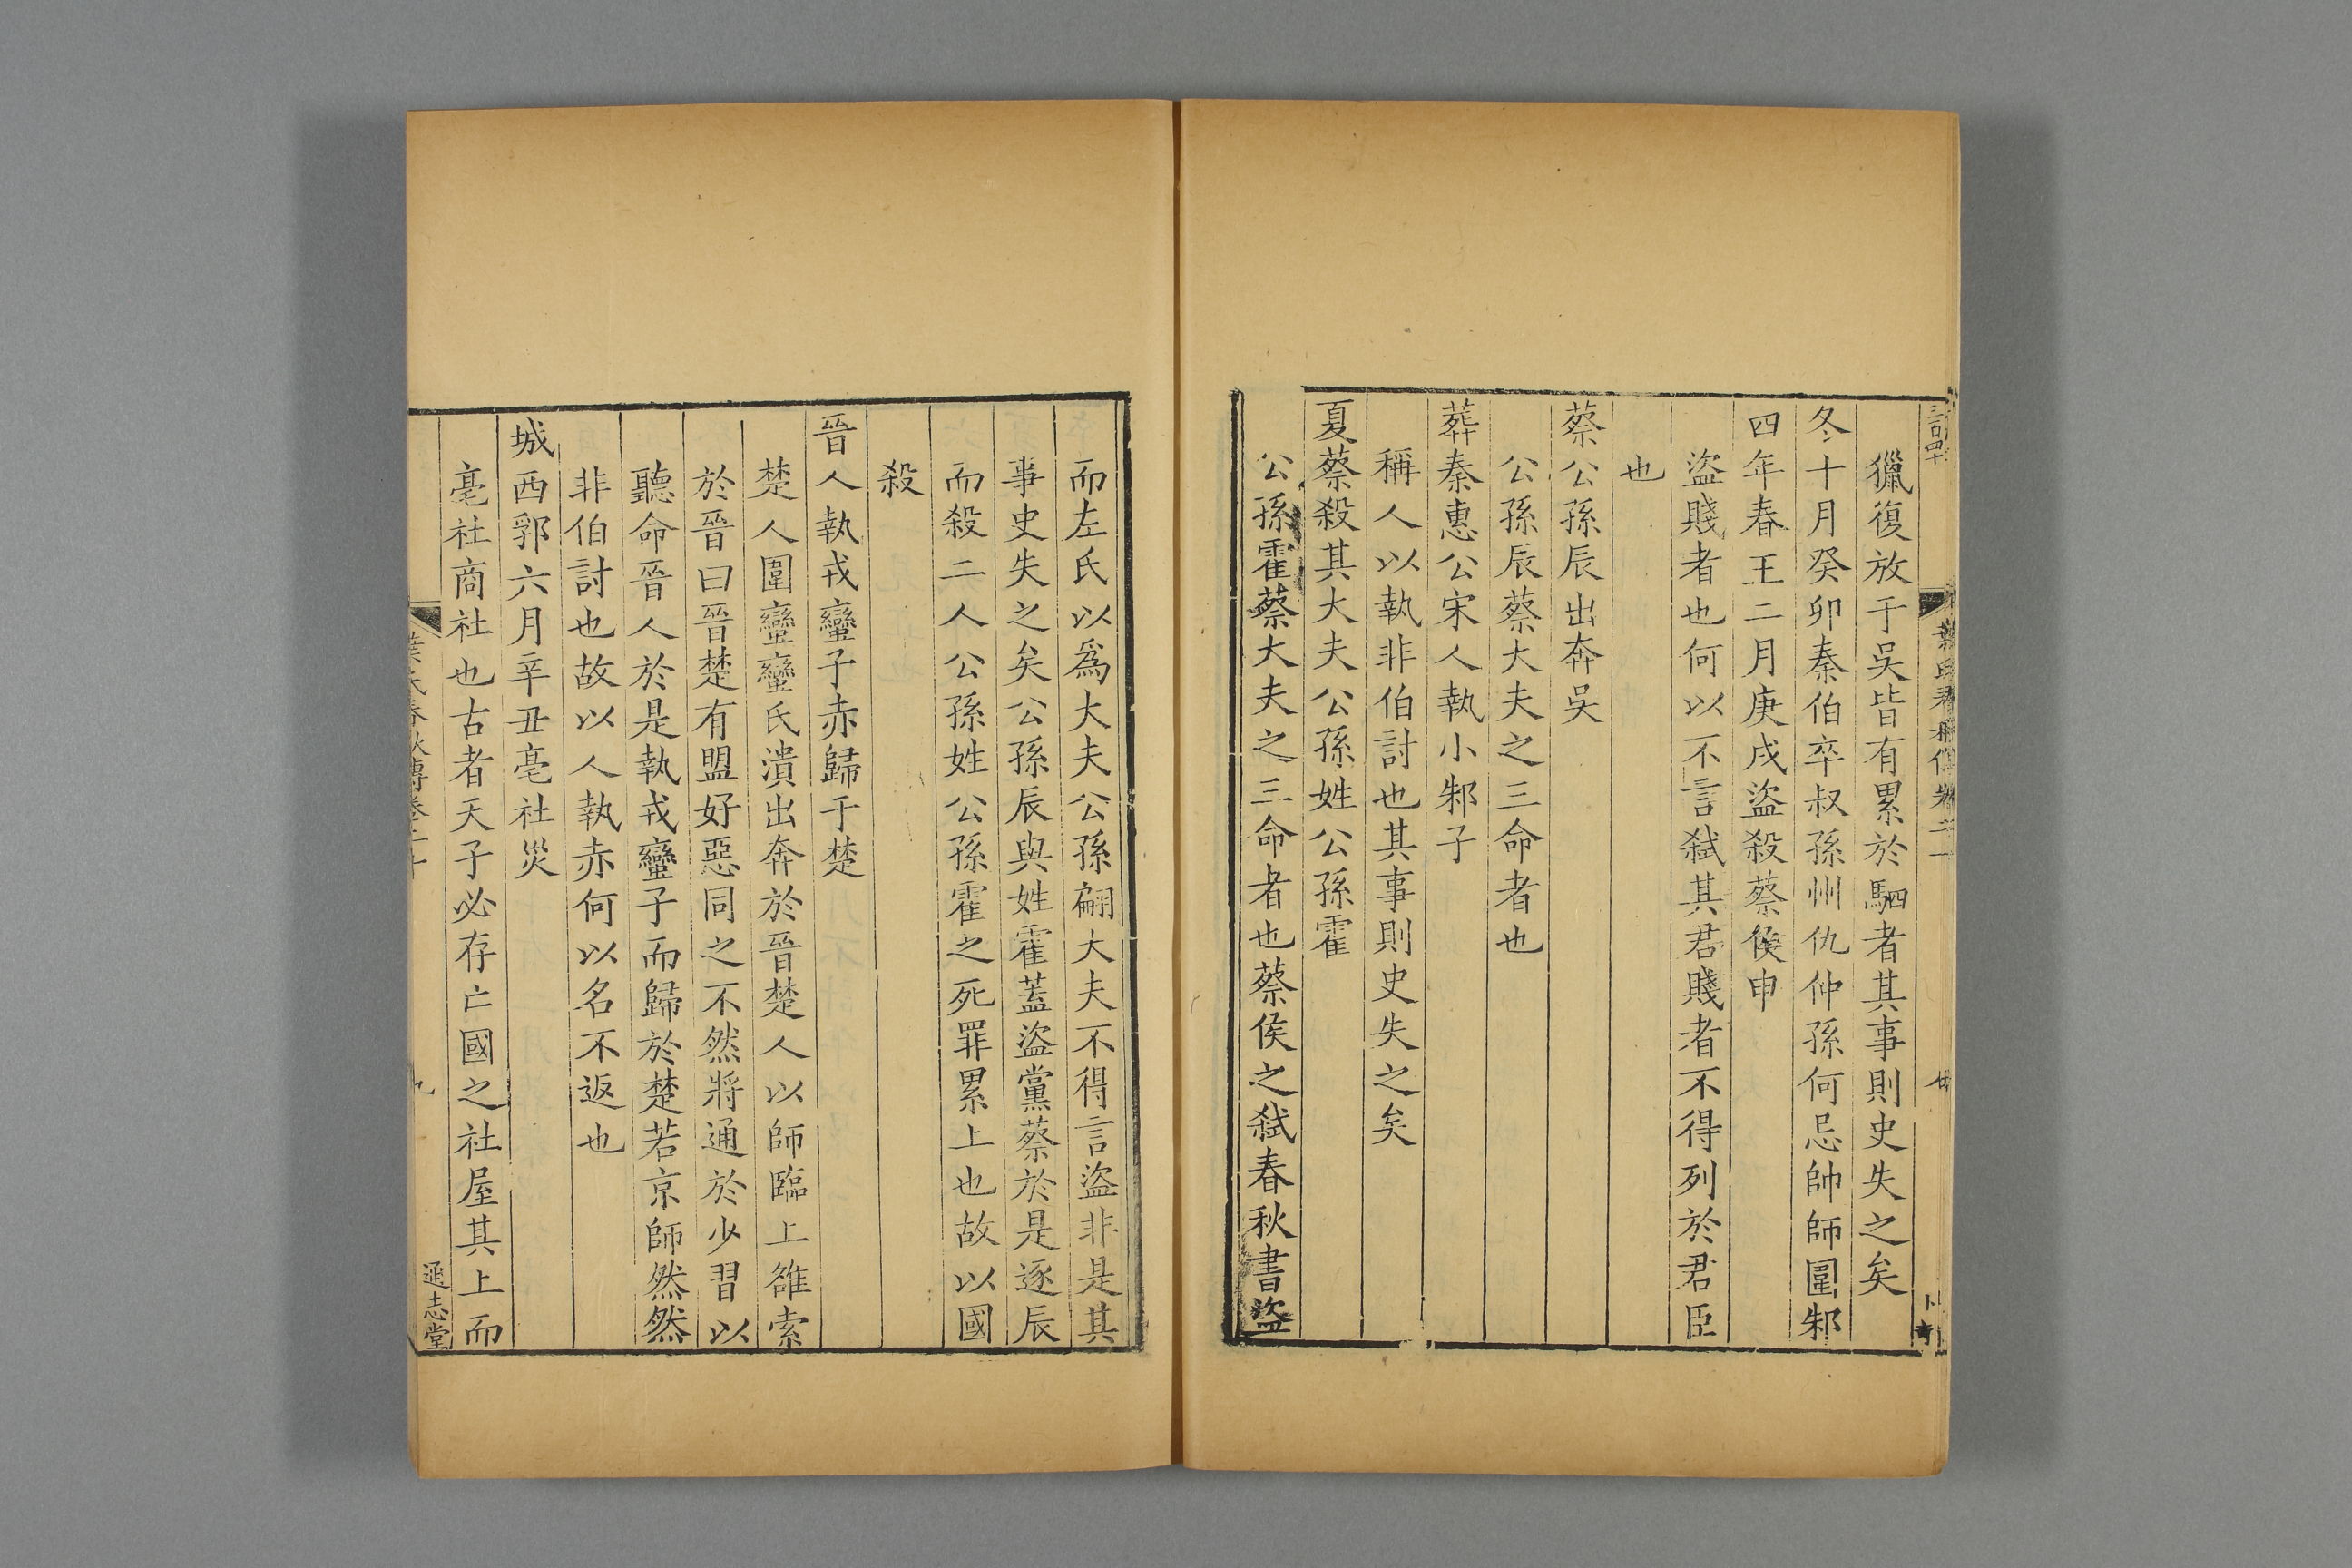 獵復放于吳皆有累於駟者其事則史失之矣
冬十月癸卯秦伯卒叔孫州仇仲孫何忌帥師圍邾
四年春王二月庚戌盜殺蔡侯申
盜賤者也何以不言弑其君賤者不得列於君臣
也
蔡公孫辰出奔吳
公孫辰蔡大夫之三命者也
葬秦惠公宋人執小邾子
稱人以執非伯討也其事則史失之矣
夏蔡殺其大夫公孫姓公孫霍
公孫霍蔡大夫之三命者也蔡侯之弑春秋書盜
而左氏以爲大夫公孫翩大夫不得言盜非是其
事史失之矣公孫辰與姓霍蓋盜黨蔡於是逐辰
而殺二人公孫姓公孫霍之死罪累上也故以國
殺
晉人執戎蠻子赤歸于楚
楚人圍蠻蠻氏潰出奔於晉楚人以師臨上雒索
於晉曰晉楚有盟好惡同之不然將通於少習以
聽命晉人於是執戎蠻子而歸於楚若京師然然
非伯討也故以人執赤何以名不返也
城西郛六月辛丑亳社災
亳社商社也古者天子必存亡國之社屋其上而
葉氏春秋傳卷二十
九
通志堂